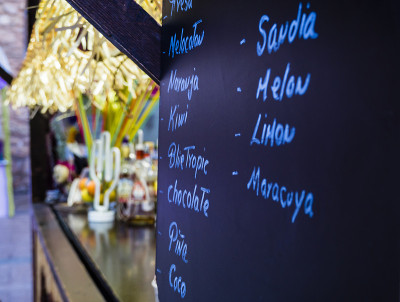 Fresa
- Melocotón
- Naranja
- Kiwi
- Blue Tropic
- chocolate
- Piña
- Coco
- Sandia
- Melon
- Limón
- Maracuya